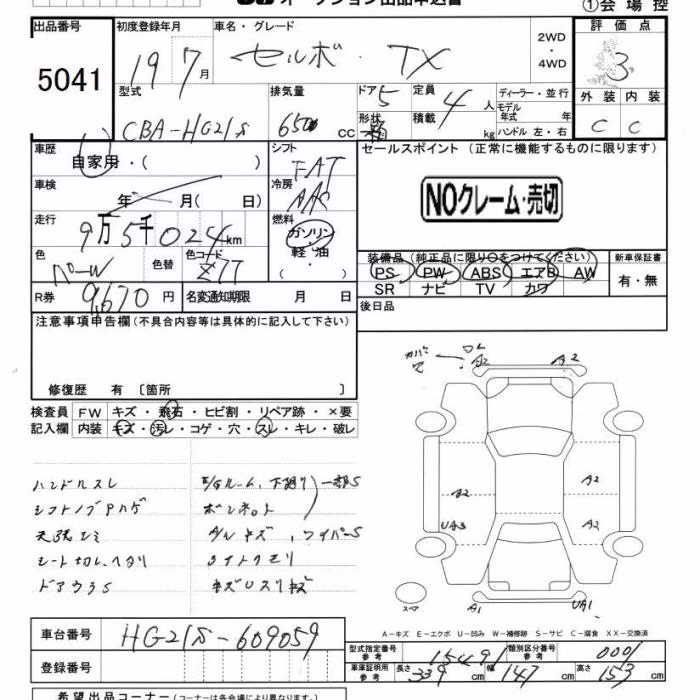 オークション出品申込書
①会場控
出品番号
5041
初度登録年月
19 7月
車名・グレード
セルボ・TX
2WD・4WD
評価点
3
型式
CBA-HG21S
排気量
cc
ドア
5
形状
箱
定員
4人
積載
kg
ディーラー・並行
モデル年式 年
ハンドル 左・右
外装 内装
C C
車歴
自家用・( )
シフト
FAT
セールスポイント (正常に機能するものに限ります)
車検
年 月( 日)
冷房
AAC
NOクレーム・売切
走行
9万5千024km
燃料
ガソリン・軽油・( )
色
パール
色替
色コード
Z7T
装備品 (純正品に限り○をつけてください)
PS PW ABS エアB AW
SR ナビ TV カワ
新車保証書
有・無
R券
9,670円
名変通知期限 月 日
後日品
注意事項申告欄(不具合内容等は具体的に記入して下さい)
修復歴 有 [箇所 ]
検査員記入欄
FW キズ・飛石・ヒビ割・リペア跡・×要
内装 キズ・汚レ・コゲ・穴・スレ・キレ・破レ
ハンドルスレ
E/Gルーム、下廻り 一部S
シフトノブPハゲ
ボンネット
天張シミ
A/Wキズ、ワイパーS
シート切レ、ヘタリ
ライトクモリ
ドアウラS
キズUスリキズ
A2
A2
A2
A2
UA3
A2
スペア
A1
UA1
A-キズ E-エクボ U-凹み W-補修跡 S-サビ C-腐食 XX-交換済
車台番号
HG21S-609059
登録番号
型式指定番号 参考
15491
類別区分番号 参考
0001
車庫証明用 参考
長さ 339cm 幅 147cm 高さ 153cm
希望出品コーナー(コーナーは各会場により異なります。)